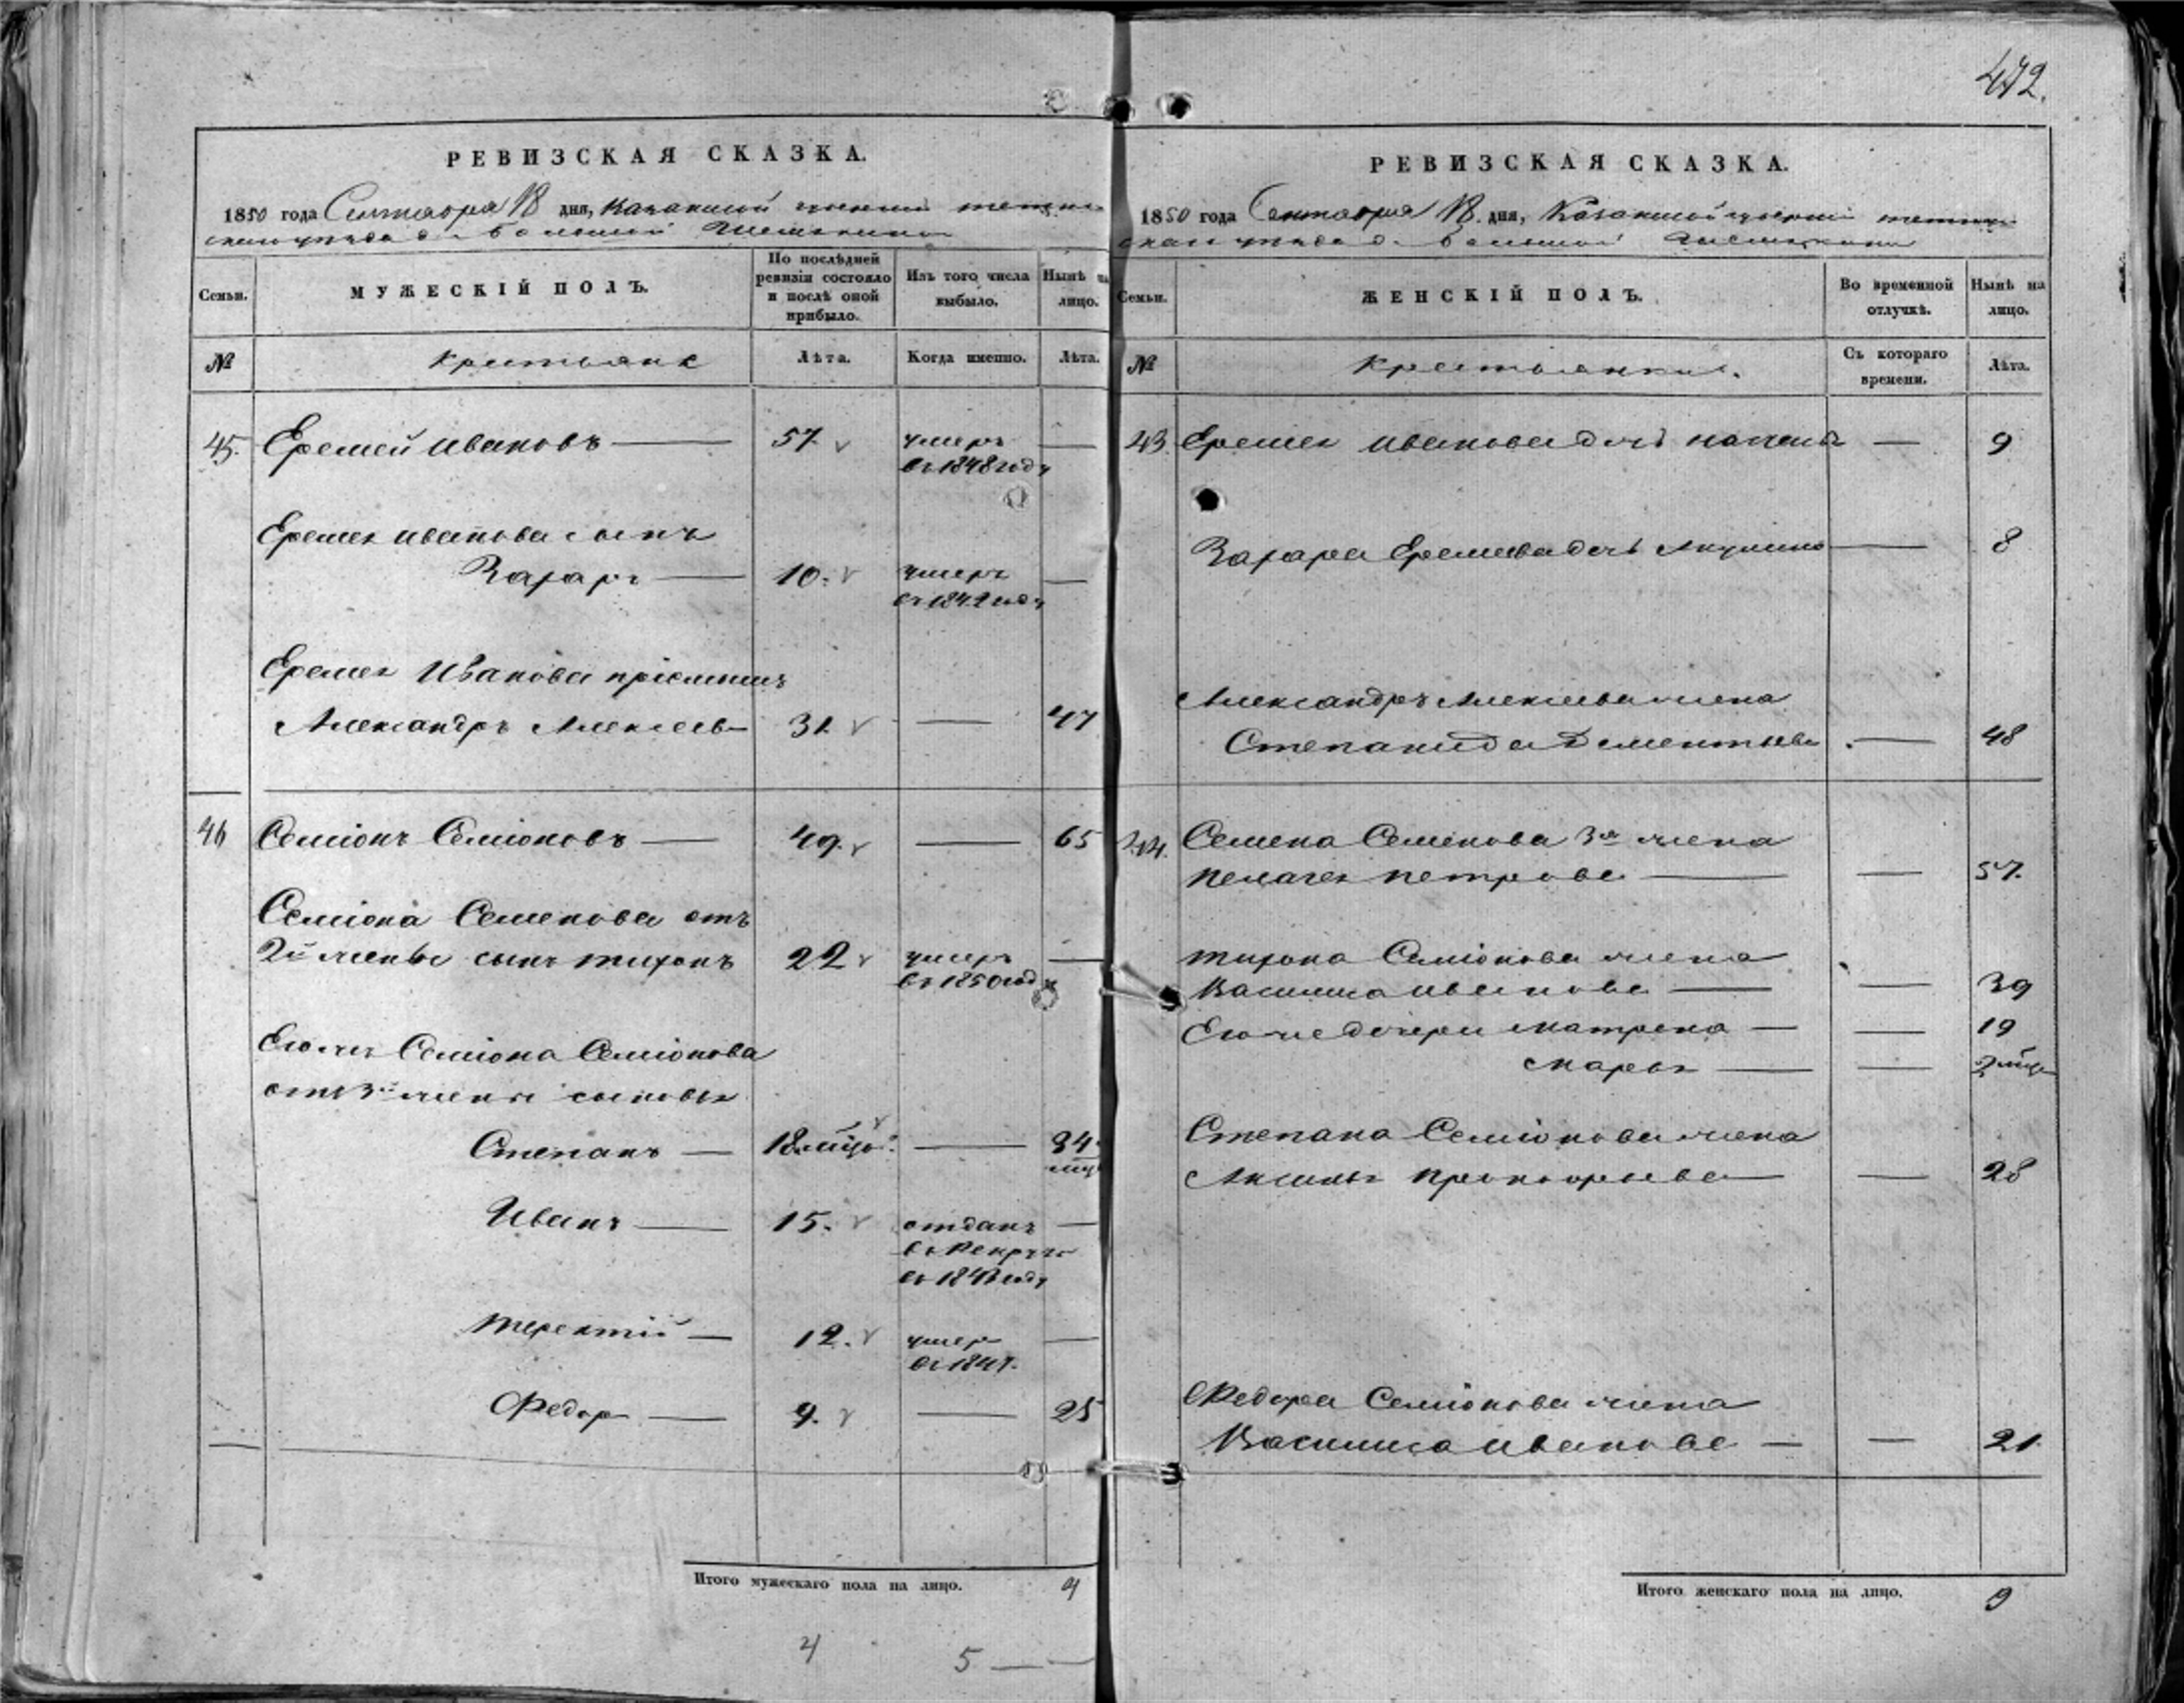 472.
РЕВИЗСКАЯ СКАЗКА.
1850 года Сентября 18 дня, Казанской губернии
уезда д. Большой
Семьи.
МУЖЕСКІЙ ПОЛЪ.
По послѣдней ревизіи состояло и послѣ оной прибыло.
Изъ того числа выбыло.
Нынѣ на лицо.
№
Крестьяне
Лѣта.
Когда именно.
Лѣта.
45. Еремей Ивановъ — 57. умеръ —
въ 1848 году
Еремея Иванова сынъ
Захаръ — 10. умеръ —
въ 1842 году
Еремея Иванова пріемышъ
Александръ Алексеевъ 31 — 47
46 Семіонъ Семіоновъ — 49. — 65
Семіона Семенова отъ
2й жены сынъ Тихонъ 22 умеръ —
въ 1850 году
Его же Семіона Семіонова
отъ 3й жены сыновья
Степанъ — 18 — 34
Иванъ — 15. отданъ —
въ рекруты
въ году
Терентій — 12. умеръ —
въ 1847.
Федоръ — 9. — 25
Итого мужескаго пола на лицо. 4
4 5 —
РЕВИЗСКАЯ СКАЗКА.
1850 года Сентября 18 дня, Казанской губерніи
уезда д. Большой
Семьи.
ЖЕНСКІЙ ПОЛЪ.
Во временной отлучкѣ.
Нынѣ на лицо.
№
Крестьянки.
Съ котораго времени.
Лѣта.
Еремея Иванова дочь — 9
Захара Еремеева дочь Акулина — 8
Александра Алексеева жена
Степанида Дементьева — 48
Семена Семенова 3я жена
Пелагея Петрова — — 57.
Тихона Семіонова жена
Василиса Иванова — — 39
Его же дочери Матрена — — 19
Марья — — 2
Степана Семіонова жена
Аксинья Прокофьева — — 28
Федора Семіонова жена
Василиса Иванова — — 21.
Итого женскаго пола на лицо. 9